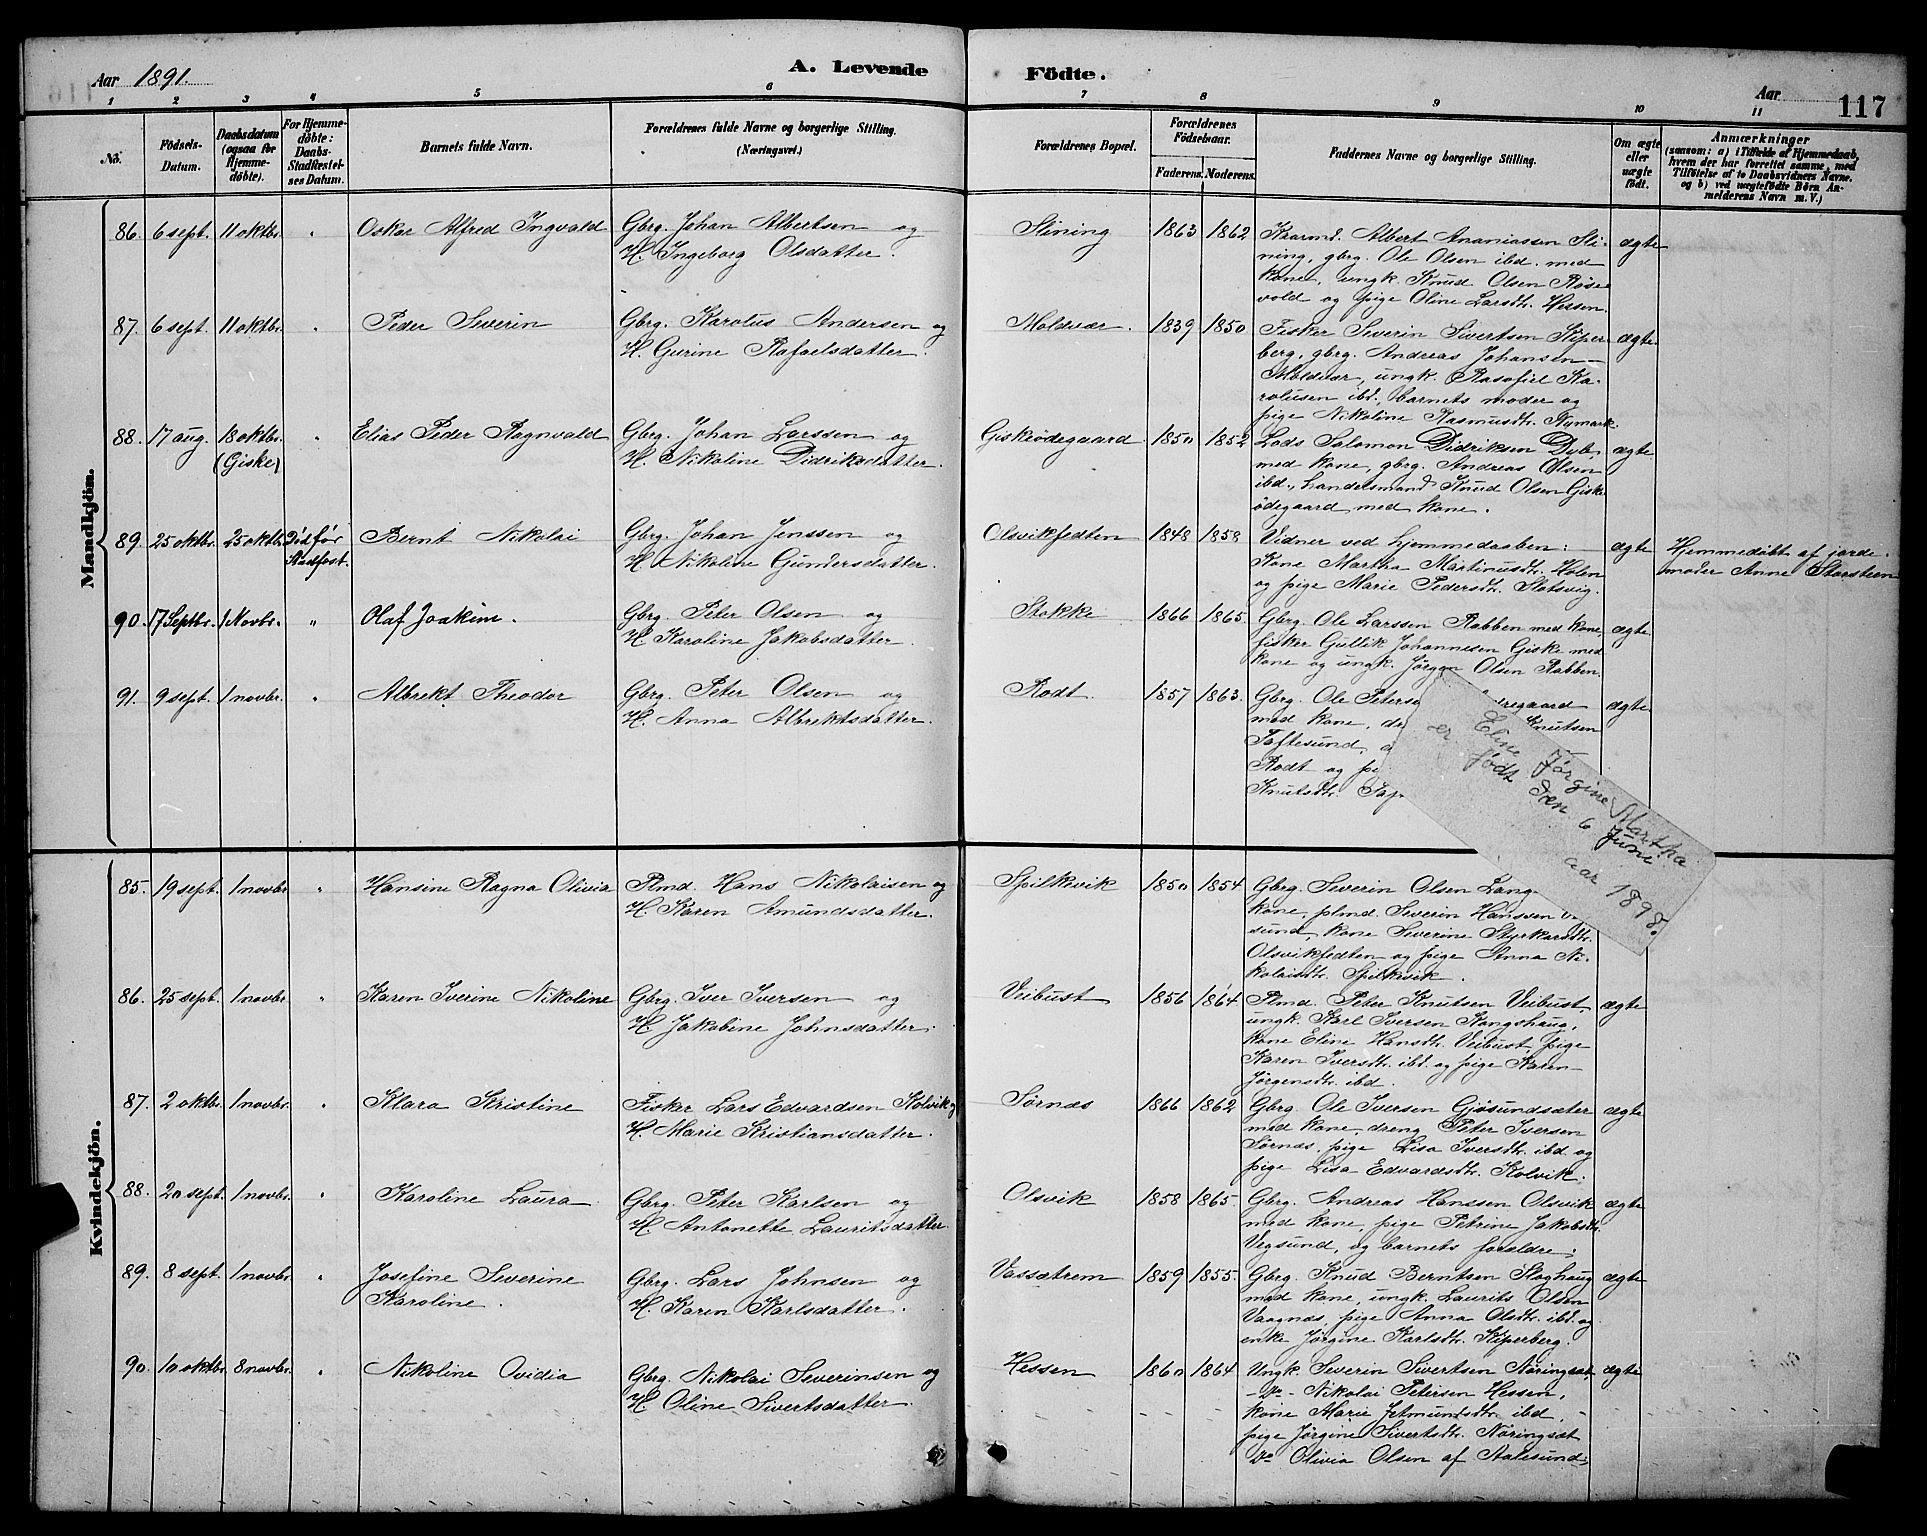 Aar 1891.
A. Levende Födte.
Aar
117
1 2 3 4 5 6 7 8 9 10 11
No. Födsels-Datum. Daabsdatum (ogsaa for Hjemme-döbte). For Hjemme-döbte: Daabs-Stadfæstel-ses Datum. Barnets fulde Navn. Forældrenes fulde Navne og borgerlige Stilling. (Næringsvei.)
Forældrenes Bopæl. Forældrenes Födselsaar. Faderens. Moderens. Faddernes Navne og borgerlige Stilling. Om ægte eller uægte födt.
Anmærkninger
(saasom: a) i Tilfælde af Hjemmedaab,
hvem der har forrettet samme, med
Tilföielse af to Daabsvidners Navne.
og b) ved uægtefödte Börn An-
melderens Navn m. V.)
Mandkjön.
86. 6 sept. 11 oktbr. " Oskar Alfred Ingvald Gbrg. Johan Albertsen og
H. Ingeborg Olsdatter.
Slining 1863 1862 Kaarmd. Albert Ananiassen Sli- ægte
ning, gbrg. Ole Olsen ibd. med
kone, ungk. Knud Olsen Röse
vold og pige Oline Larsdtr. Hessen.
87. 6 sept. 11 oktbr. " Peder Severin Gbrg. Karolus Andersen og
H. Gurine Rafaelsdatter.
Moldvær. 1839 1850 Fisker Severin Sivertsen Kiper- ægte.
berg, gbrg. Andreas Johansen
Moldvær, ungk. Rasafiel Ka-
rolusen ibd., barnets moder og
pige Nikoline Rasmusdtr. Nymark.
88. 17 aug. 18 oktbr. (Giske) " Elias Peder Ragnvald Gbrg. Johan Larssen og
H. Nikoline Didriksdatter.
Giskeödegaard 1850 1852 Lods Salomon Didriksen Dyb, ægte
med kone, gbrg. Andreas Olsen
ibd., handelsmand Knud Olsen Giske
ödegaard med kone.
89. 25 oktbr. 25 oktbr. Död för Stadfæst. Bernt Nikolai Gbrg. Johan Jenssen og
H. Nikoline Gundersdatter.
Olsvikfedten 1848 1858 Vidner ved hjemmedaaben: ægte Hjemmedöbt af jorde-
Kone Martha Martinusdtr. Holen moder Anne Storsteen
og pige Marie Pedersdtr. Slotsvig.
90. 17 Septbr. 1 Novbr. " Olaf Joakim. Gbrg. Peter Olsen og
H. Karoline Jakobsdatter.
Stokke 1866 1865. Gbrg. Ole Larssen Rabben med kone, ægte.
fisker Gullik Johannesen Giske med
kone og ungk. Jörgen Olsen Rabben.
91. 9 sept. 1 novbr. " Albrekt Theodor Gbrg. Peter Olsen og
H. Anna Albrektsdatter.
Rodt. 1857 1863. Gbrg. Ole Peterse regaard ægte.
med kone, dr Knutsen
Toftesund,
Rodt og pi
Knutsdtr.
Eline Jörgine Martha
er födt Den 6 June
aar 1898.
Kvindekjön.
85. 19 sept. 1 novbr. " Hansine Ragna Olivia Plmd. Hans Nikolaisen og
H. Karen Amundsdatter.
Spilkevik 1850 1854 Gbrg. Severin Olsen Lang
kone, plmd. Severin Hanssen
sund, kone Severine Styrkarsdtr.
Olsvikfedten og pige Anna Ni-
kolaisdtr. Spilkevik.
86. 25 sept. 1 novbr. " Karen Iverine Nikoline Gbrg. Iver Iversen og
H. Jakobine Johnsdatter.
Veibust 1856 1864 Plmd. Peter Knutsen Veibust, ægte
ungk. Karl Iversen Kongshaug,
kone Eline Hansdtr. Veibust, pige
Karen Iversdtr. ibd. og pige Karen
Jörgensdtr. ibd.
87. 2 oktbr. 1 novbr. " Klara Kristine Fisker Lars Edvardsen Kolvik og
H. Marie Kristiansdatter.
Sörnæs 1866 1862 Gbrg. Ole Iversen Gjösundsæter ægte
med kone, dreng Peter Iversen
Sörnæs, pige Lisa Iversdtr. ibd. og
pige Lisa Edvardsdtr. Kolvik.
88. 20 sept. 1 novbr. " Karoline Laura Gbrg. Peter Karlsen og
H. Antonette Lauritsdatter
Olsvik 1858 1865. Gbrg. Andreas Hanssen Olsvik ægte
med kone, pige Petrine Jakobsdtr.
Vegsund, og barnets forældre.
89. 8 sept. 1 novbr. " Josefine Severine Karoline. Gbrg. Lars Johnsen og
H. Karen Karlsdatter.
Vassætrem 1859 1855. Gbrg. Knud Berntsen Slaghaug ægte
med kone, ungk. Laurits Olsen
Vaagnæs, pige Anna Olsdtr. ibd. og
enke Jörgine Karlsdtr. Kiperberg.
90. 10 oktbr. 8 novbr. " Nikoline Ovidia Gbrg. Nikolai Severinsen og
H. Oline Sivertsdatter.
Hessen 1860 1864 Ungk. Severin Sivertsen Nöringsæt, ægte
-Do- Nikolai Petersen Hessen,
kone Marie Jetmundsdtr. ibd.,
pige Jörgine Sivertsdtr. Nöringsæt
Do Olivia Olsen af Aalesund.